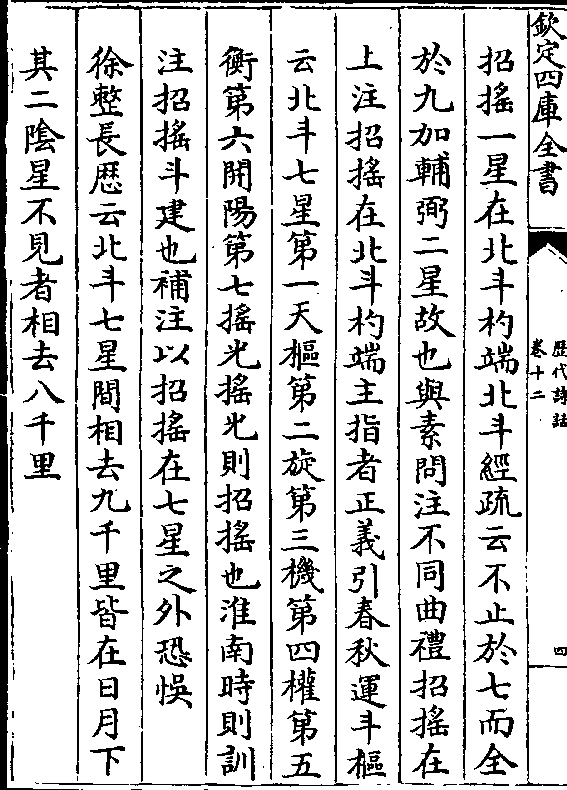 欽定四庫全書
歴代詩話
卷十二
四
招搖一星在北斗杓端北斗經疏云不止於七而全
於九加輔弼二星故也與素問注不同曲禮招搖在
上注招搖在北斗杓端主指者正義引春秋運斗樞
云北斗七星第一天樞第二旋第三機第四權第五
衡第六開陽第七搖光搖光則招搖也淮南時則訓
注招搖斗建也補注以招搖在七星之外恐悞
徐整長厯云北斗七星間相去九千里皆在日月下
其二陰星不見者相去八千里